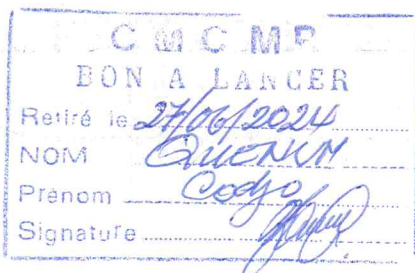 CMCMP
BON A LANCER
Retiré le 27/06/2024
NOM QUENUM
Prénom Codjo
Signature